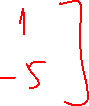 1
-5 ]